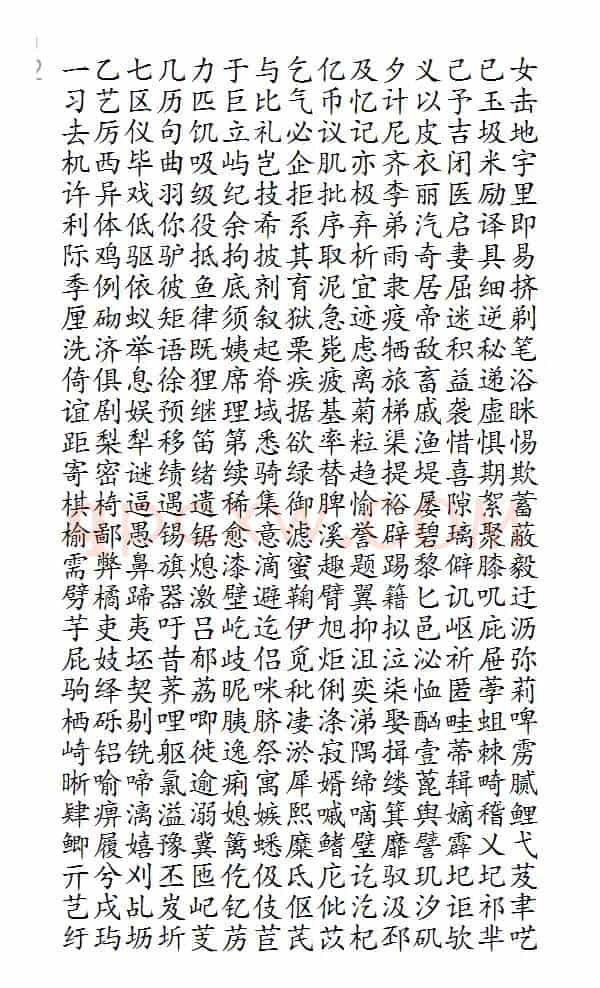 一乙七几力于与乞亿及夕义己已女
习艺区历匹巨比气币忆计以予玉击
去厉仪句饥立礼必议记尼皮吉圾地
机西毕曲吸屿岂企肌亦齐衣闭米宇
许异戏羽级纪技拒批极李丽医励里
利体低你役余希系序弃弟汽启译即
际鸡驱驴抵拘披其取析雨奇妻具易
季例依彼鱼底剂育泥宜隶居屈细挤
厘砌蚁矩律须叙狱急迹疫帝迷逆剃
洗济举语既姨起栗毙虑牺敌积秘笔
倚俱息徐狸席脊疾疲离旅畜益递浴
谊剧娱预继理域据基菊梯戚袭虚眯
距梨犁移笛第悉欲率粒渠渔惜惧惕
寄密谜绩绪续骑绿替趋提堤喜期欺
棋椅逼遇遗稀集御脾愉裕屡隙絮蓄
榆鄙愚锡锯愈意滤溪誉辟碧璃聚蔽
需弊鼻旗熄漆滴蜜趣题踢黎僻膝毅
劈橘蹄器激壁避鞠臂翼籍匕讥叽迂
芋吏夷吁吕屹迄伊旭抑拟邑岖庇沥
屁妓坯昔郁歧侣觅炬沮泣泌祈屉弥
驹绎契荠荔昵咪秕俐奕柒恤匿荸莉
栖砾剔哩唧胰脐凄涤涕娶酗畦蛆啤
崎铝铣躯徙逸祭淤寂隅揖壹蒂棘雳
晰喻啼氯逾痢寓犀婿缔缕蓖辑畸腻
肄痹漓溢溺媳嫉熙嘁嘀箕舆嫡稽鲤
鲫履嬉豫冀篱蟋糜鳍璧靡譬霹乂弋
亓兮刈丕匜仡伋氐庀讫驭玑圮圯芨
芑戌乩岌屺钇伎伛仳汔汲汐讵祁聿
纡玙坜圻芰苈苣芪苡杞邳矶欤芈呓